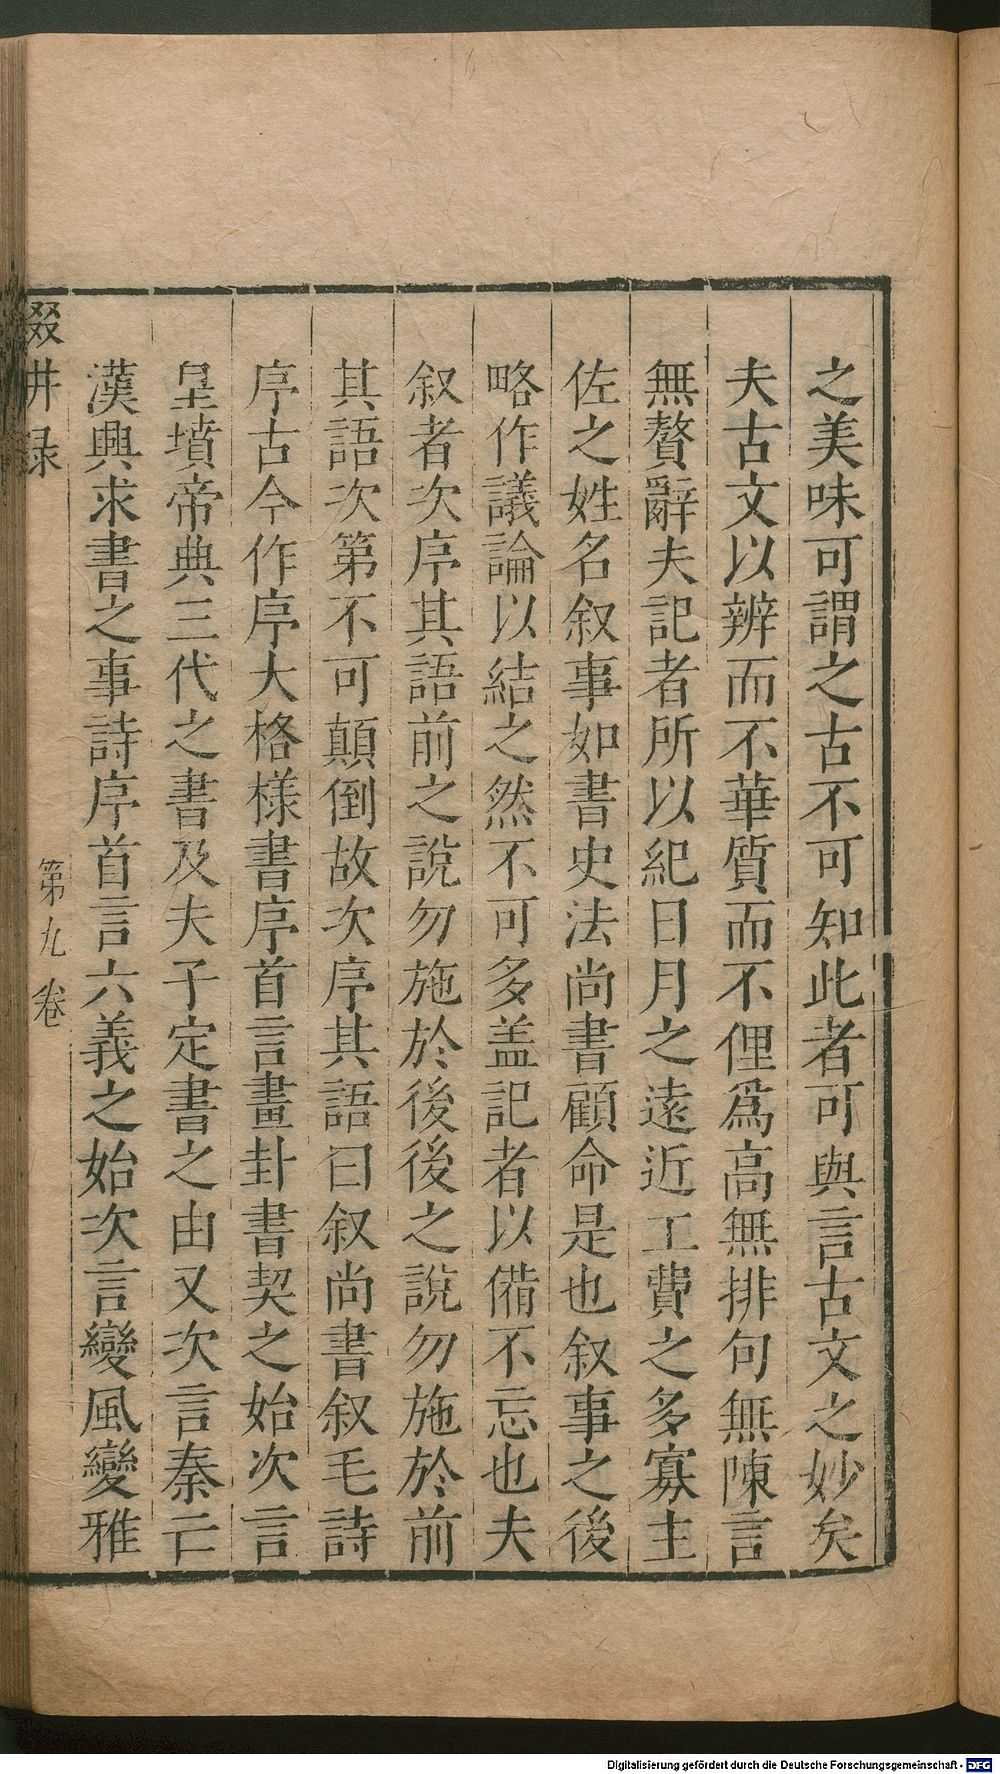 之美味可謂之古不可知此者可與言古文之妙矣
夫古文以辨而不華質而不俚爲高無排句無陳言
無贅辭夫記者所以紀日月之遠近工費之多寡主
佐之姓名叙事如書史法尚書顧命是也叙事之後
略作議論以結之然不可多盖記者以備不忘也夫
叙者次序其語前之說勿施於後後之說勿施於前
其語次第不可顛倒故次序其語曰叙尚書叙毛詩
序古今作序大格樣書序首言畫卦書契之始次言
皇墳帝典三代之書及夫子定書之由又次言秦亡
漢興求書之事詩序首言六義之始次言變風變雅
第九卷
Digitalisierung gefördert durch die Deutsche Forschungsgemeinschaft - DFG